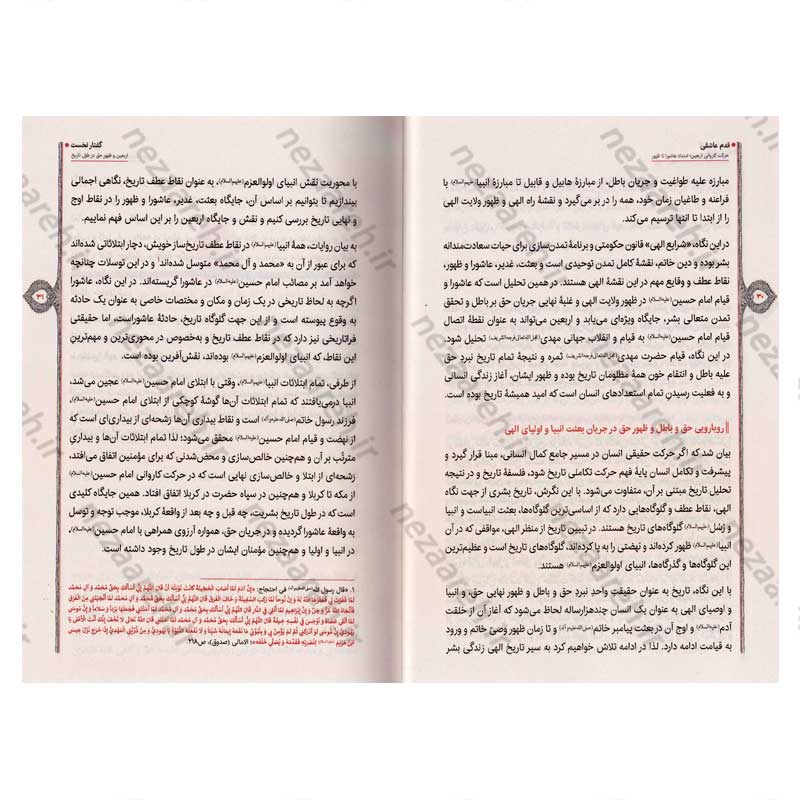 قدم عاشقی
حرکت کاروانی اربعین؛ امتداد عاشورا تا ظهور
مبارزه علیه طواغیت و جریان باطل، از مبارزۀ هابیل و قابیل تا مبارزۀ انبیا (علیهم السلام) با
فراعنه و طاغیان زمان خود، همه را در بر می‌گیرد و نقشۀ راه الهی و ظهور ولایت الهی
را از ابتدا تا انتها ترسیم می‌کند.
در این نگاه، «شرایع الهی» قانون حکومتی و برنامۀ تمدن‌سازی برای حیات سعادت‌مندانه
بشر بوده و دین خاتم، نقشۀ کامل تمدن توحیدی است و بعثت، غدیر، عاشورا و ظهور،
نقاط عطف و وقایع مهم در این نقشۀ الهی هستند. در همین تحلیل است که عاشورا و
قیام امام حسین (علیه السلام) در ظهور ولایت الهی و غلبۀ نهایی جریان حق بر باطل و تحقق
تمدن متعالی بشر، جایگاه ویژه‌ای می‌یابد و اربعین می‌تواند به عنوان نقطۀ اتصال
قیام امام حسین (علیه السلام) به قیام و انقلاب جهانی مهدی (عجل الله تعالی فرجه الشریف) تحلیل شود.
در این نگاه، قیام حضرت مهدی (عجل الله تعالی فرجه الشریف) ثمره و نتیجۀ تمام تاریخ نبرد حق
علیه باطل و انتقام خون همۀ مظلومان تاریخ بوده و ظهور ایشان، آغاز زندگی انسانی
و به فعلیت رسیدن تمام استعدادهای انسان است که امید همیشۀ تاریخ بوده است.
رویارویی حق و باطل و ظهور حق در جریان بعثت انبیا و اولیای الهی
بیان شد که اگر حرکت حقیقی انسان در مسیر جامع کمال انسانی، مبنا قرار گیرد و
پیشرفت و تکامل انسان پایۀ فهم حرکت تکاملی تاریخ شود، فلسفۀ تاریخ و در نتیجه
تحلیل تاریخ مبتنی بر آن، متفاوت می‌شود. با این نگرش، تاریخ بشری از جهت نگاه
الهی، نقاط عطف و گلوگاه‌هایی دارد که از اساسی‌ترین گلوگاه‌ها، بعثت انبیاست و انبیا
و رُسُل (علیهم السلام) گلوگاه‌های تاریخ هستند. در تبیین تاریخ از منظر الهی، مواقفی که در آن
انبیا (علیهم السلام) ظهور کرده‌اند و نهضتی را به پا کرده‌اند، گلوگاه‌های تاریخ است و عظیم‌ترین
این گلوگاه‌ها و گذرگاه‌ها، انبیای اولوالعزم (علیهم السلام) هستند.
با این نگاه، تاریخ به عنوان حقیقت واحدِ نبرد حق و باطل و جایگاه تاریخی انبیا
و اوصیای الهی به عنوان یک انسان چندهزارساله لحاظ می‌شود که آغاز آن از خلقت
آدم (علیه السلام) و اوج آن در بعثت پیامبر خاتم (صلی الله علیه و آله) و تا زمان ظهور وصی خاتم و ورود
به قیامت ادامه دارد. لذا در ادامه تلاش خواهیم کرد به سیر تاریخ الهی زندگی بشر
۳۰
گفتار نخست
اربعین و ظهور حق در طول تاریخ
با محوریت نقش انبیای اولوالعزم (علیهم السلام)، به عنوان نقاط عطف تاریخ، نگاهی اجمالی
بیندازیم تا بتوانیم بر اساس آن، جایگاه بعثت، غدیر، عاشورا و ظهور را در نقاط اوج
و نهایی تاریخ بررسی کنیم و نقش و جایگاه اربعین را بر این اساس فهم نماییم.
به بیان روایات، همۀ انبیا (علیهم السلام) در نقاط عطف تاریخ‌ساز خویش، دچار ابتلائاتی شده‌اند
که برای عبور از آن به «محمد و آل محمد» متوسل شده‌اند۱ و در این توسلات چنانچه
خواهد آمد بر مصائب امام حسین (علیه السلام) در عاشورا گریسته‌اند. در این نگاه، عاشورا
اگرچه به لحاظ تاریخی در یک زمان و مکان و مختصات خاصی به عنوان یک حادثه
به وقوع پیوسته است و از این جهت گلوگاه تاریخ، حادثۀ عاشوراست، اما حقیقتی
فراتاریخی نیز دارد که در نقاط عطف تاریخ و به‌خصوص در محوری‌ترین و مهم‌ترینِ
این نقاط، که انبیای اولوالعزم (علیهم السلام) بوده‌اند، نقش‌آفرین بوده است.
از طرفی، تمام ابتلائات انبیا (علیهم السلام) وقتی با ابتلای امام حسین (علیه السلام) عجین می‌شد،
انبیا درمی‌یافتند که تمام ابتلائات آن‌ها گوشۀ کوچکی از ابتلای امام حسین (علیه السلام)
فرزند رسول خاتم (صلی الله علیه و آله) است و نقاط بیداری آن‌ها رَشحه‌ای از بیداری‌ای است که
از نهضت و قیام امام حسین (علیه السلام) محقق می‌شود؛ لذا تمام ابتلائات آن‌ها و بیداریِ
مترتّب بر آن و هم‌چنین خالص‌سازی و محض‌شدنی که برای مؤمنین اتفاق می‌افتد،
رَشحه‌ای از ابتلا و خالص‌سازی نهایی است که در حرکت کاروانی امام حسین (علیه السلام)
از مکه تا کربلا و هم‌چنین در سپاه حضرت در کربلا اتفاق افتاد. همین جایگاه کلیدی
است که در طول تاریخ بشریت، چه قبل و چه بعد از واقعۀ کربلا، موجب توجه و توسل
به واقعۀ عاشورا گردیده و در جریان حق، همواره آرزوی همراهی با امام حسین (علیه السلام)،
در انبیا و اولیا و هم‌چنین مؤمنان ایشان در طول تاریخ وجود داشته است.
۱. «قال رسول الله (صلی الله علیه و آله) فی احتجاج:
الامالی (صدوق)، ص۲۱۸.
۳۱
nezaareh.ir